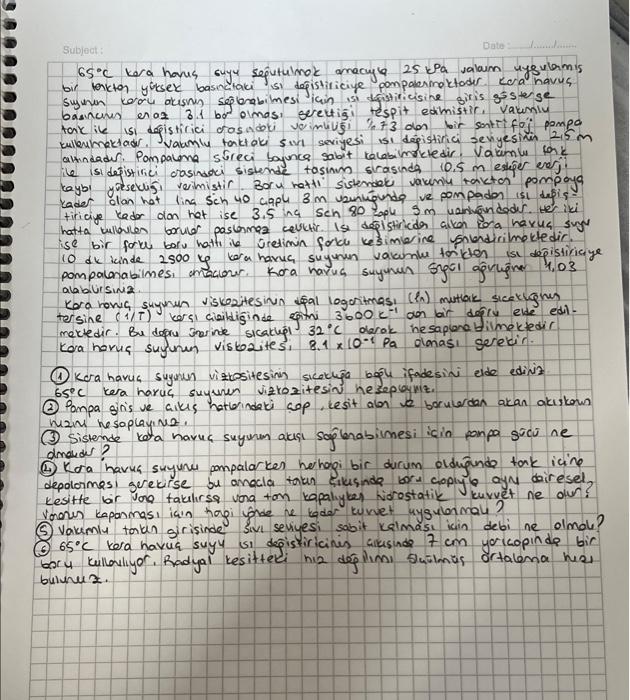 Subject:
Date:
65°C kara havuç suyu soğutulmak amacıyla 25 kPa vakum uygulanmış
bir tanktan yüksek basınçtaki ısı değiştiriciye pompalanmaktadır. Kara havuç
suyunun kararlı akışının sağlanabilmesi için ısı değiştiricisine giriş gösterge
basıncının en az 3.1 bar olması gerektiği tespit edilmiştir. Vakumlu
tank ile ısı değiştirici arasındaki verimliliği %73 olan bir santrifüj pompa
kullanılmaktadır. Vakumlu tanktaki sıvı seviyesi ısı değiştirici seviyesinin 2,5 m
altındadır. Pompalama süreci boyunca sabit kalabilmektedir. Vakumlu tank
ile ısı değiştirici arasındaki sistemde taşınım sırasında 10,5 m eşdeğer enerji
kaybı yüksekliği verilmiştir. Boru hattı sistemdeki vakumlu tanktan pompaya
kadar olan hat 1inç Sch 40 çaplı 3 m uzunluğunda ve pompadan ısı değiş-
tiriciye kadar olan hat ise 3,5 inç Sch 80 çaplı 5m uzunluğundadır. Her iki
hatta kullanılan borular paslanmaz çeliktir. Isı değiştiriciden çıkan kara havuç suyu
ise bir farklı boru hattı ile üretimin farklı kesimlerine yönlendirilmektedir.
10 dk içinde 2800 kg kara havuç suyunun vakumlu tanktan ısı değiştiriciye
pompalanabilmesi amaçlanır. Kara havuç suyunun özgül ağırlığını 1,03
alabilirsiniz.
Kara havuç suyunun viskozitesinin doğal logaritması (ln) mutlak sıcaklığının
tersine (1/T) karşı çizildiğinde eğimi 3600 K⁻¹ olan bir doğru elde edil-
mektedir. Bu doğru üzerinde sıcaklığı 32°C olarak hesaplanabilmektedir
Kara havuç suyunun viskozitesi 8.1 x 10⁻⁴ Pa olması gerekir.
① Kara havuç suyunun viskositesinin sıcaklığa bağlı ifadesini elde ediniz
65°C kara havuç suyunun vizkozitesini hesaplayınız.
② Pompa giriş ve çıkış hatlarındaki çap, kesit alan ve borulardan akan akışkanın
hızını hesaplayınız.
③ Sistemde kara havuç suyunun akışı sağlanabilmesi için pompa gücü ne
olmalıdır?
④ Kara havuç suyunu pompalarken herhangi bir durum olduğunda tank içine
depolanması gerekirse bu amaçla tankın çıkışında boru çapıyla aynı dairesel
kesitte bir vana takılırsa vana tam kapalıyken hidrostatik kuvvet ne olur?
Vananın kapanması için hangi yönde ne kadar kuvvet uygulanmalı?
⑤ Vakumlu tankın girişinde sıvı seviyesi sabit kalması için debi ne olmalı?
⑥ 65°C kara havuç suyu ısı değiştiricinin çıkışında 7 cm yarıçapında bir
boru kullanılıyor. Radyal kesitteki hız dağılımı ölçülmüş ortalama hızı
bulunuz.